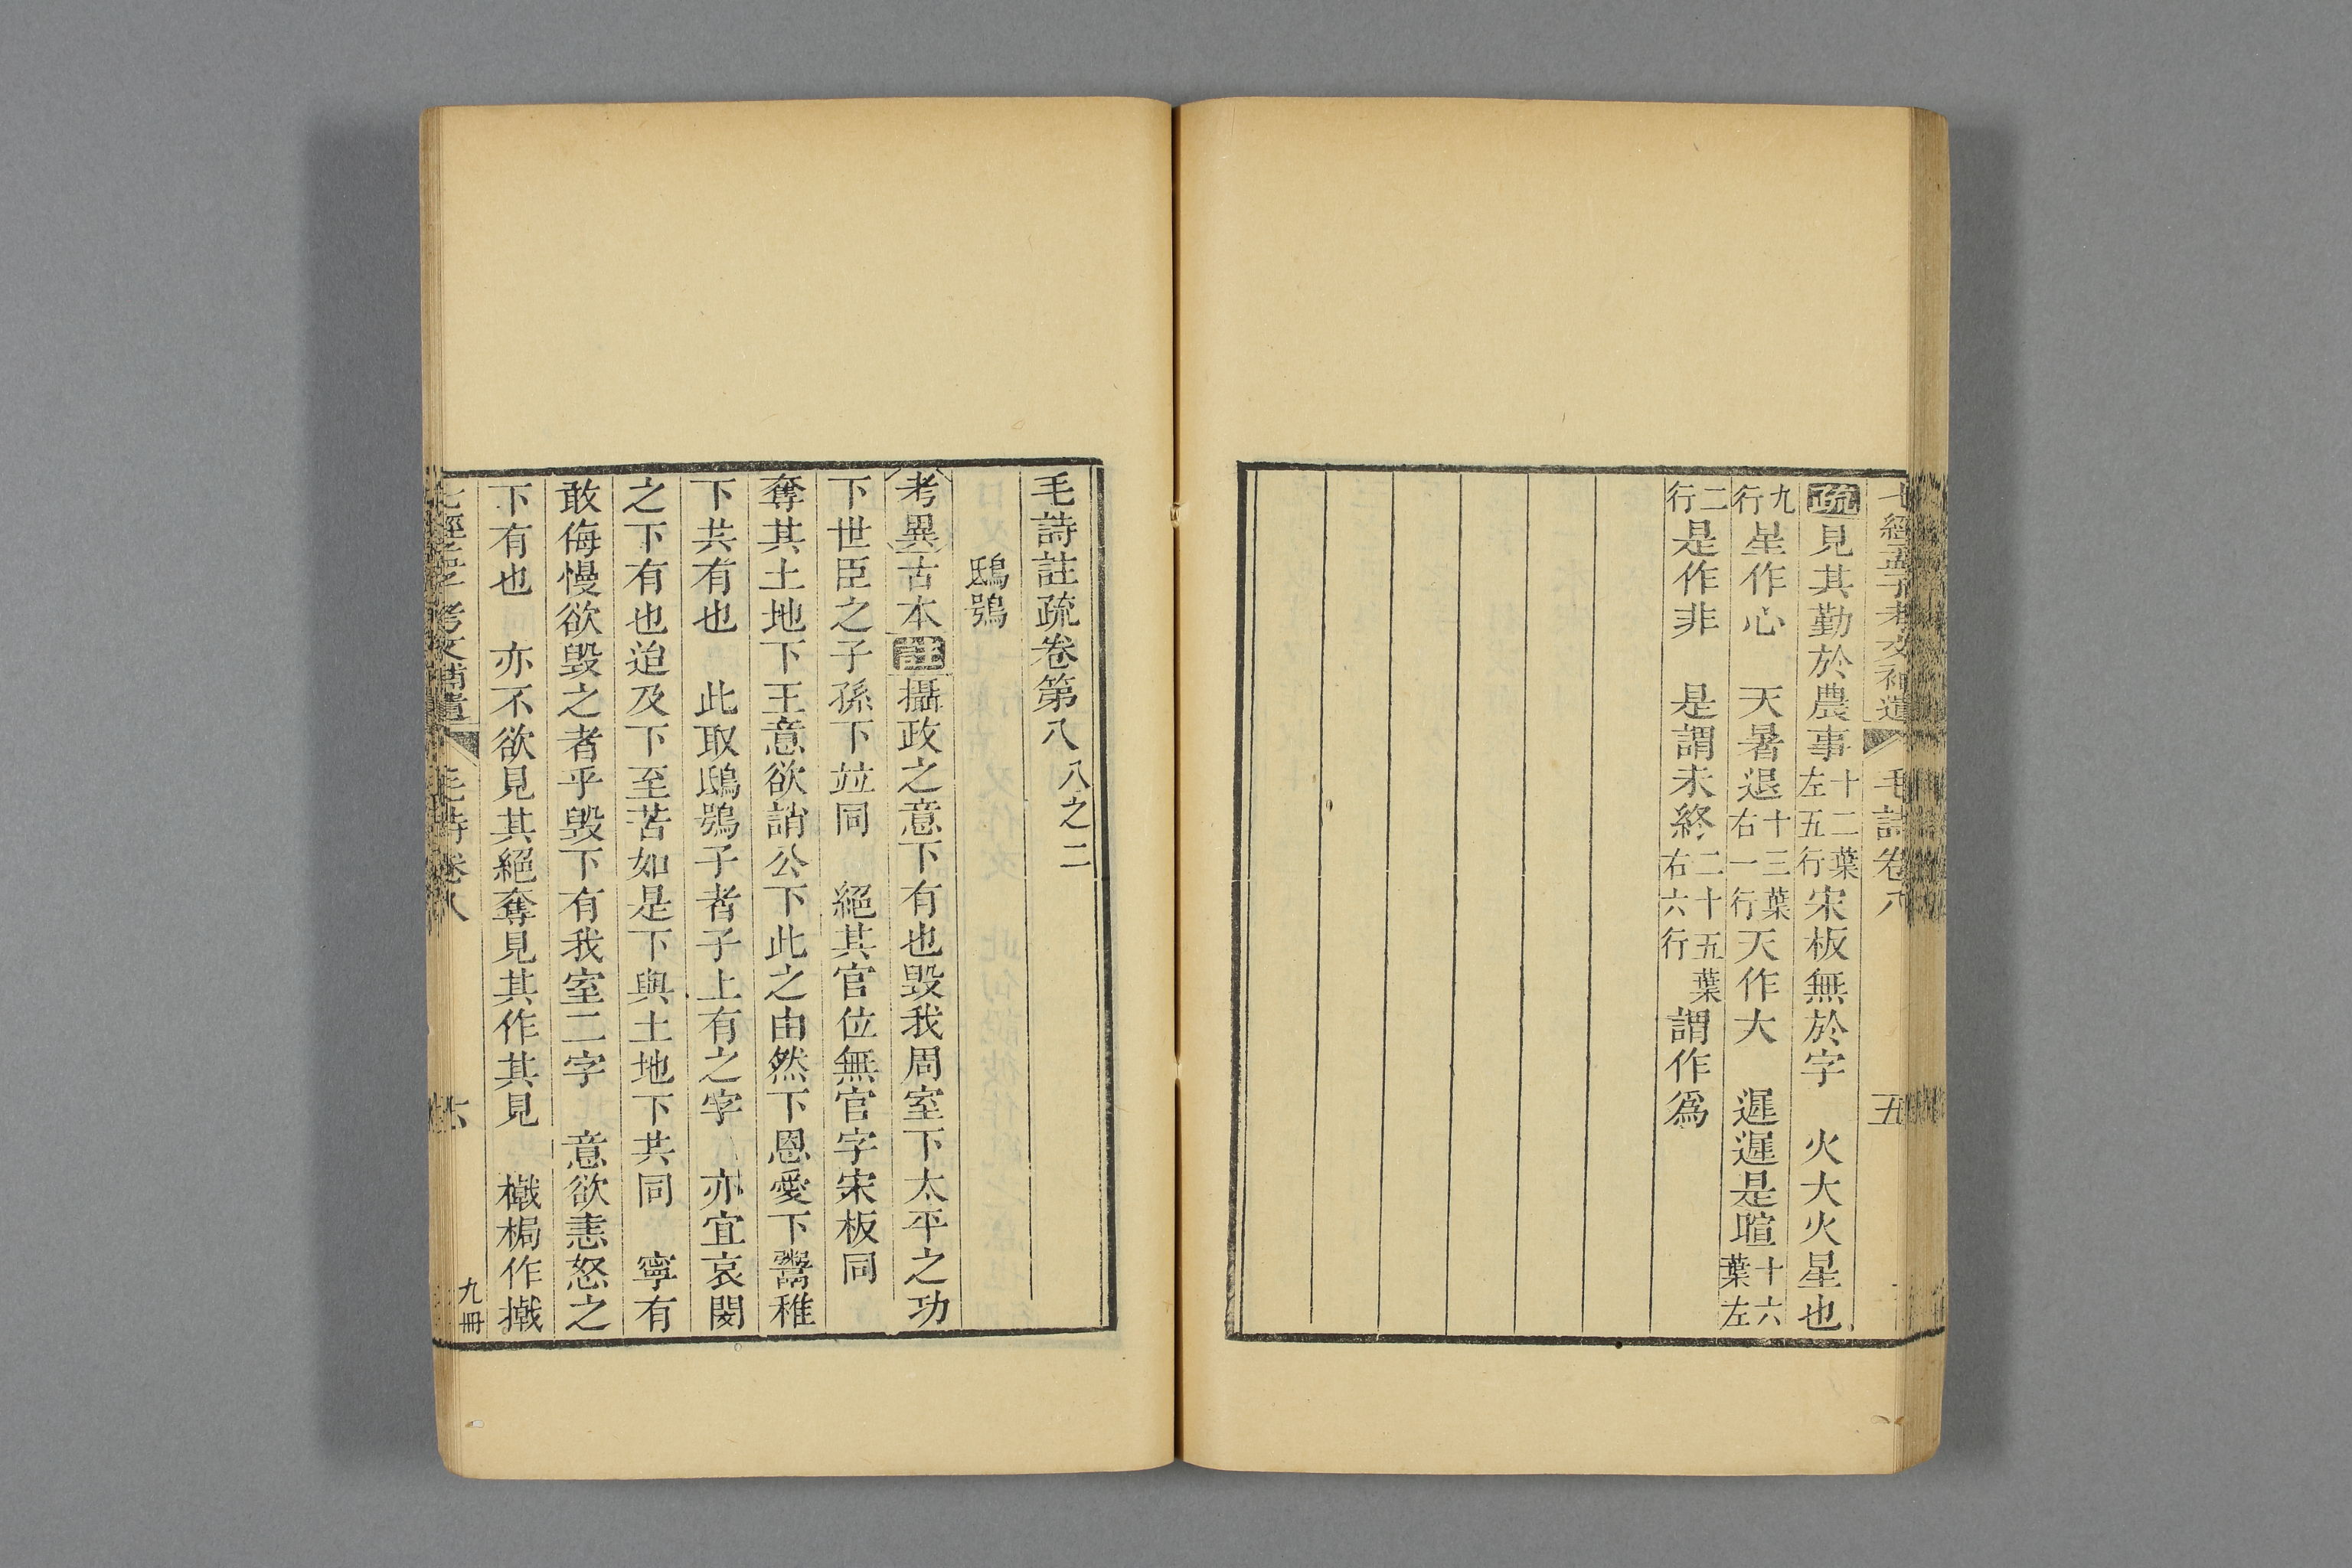 七經孟子考文補遺 毛詩卷八 五
疏見其勤於農事十二葉左五行宋板無於字 火大火星也
九行星作心 天暑退十三葉右一行天作大 遲遲是暄十六葉左
二行是作非 是謂未終二十五葉右六行謂作爲
毛詩註疏卷第八 八之二
鴟鴞
考異古本註攝政之意下有也毀我周室下太平之功
下世臣之子孫下竝同 絕其官位無官字宋板同
奪其土地下王意欲誚公下此之由然下恩愛下鬻稚
下共有也 此取鴟鴞子者子上有之字 亦宜哀閔
之下有也迨及下至苦如是下與土地下共同 寧有
敢侮慢欲毀之者乎毀下有我室二字 意欲恚怒之
下有也 亦不欲見其絕奪見其作其見 檝梮作撠
七經孟子考文補遺 毛詩卷八 六 九冊